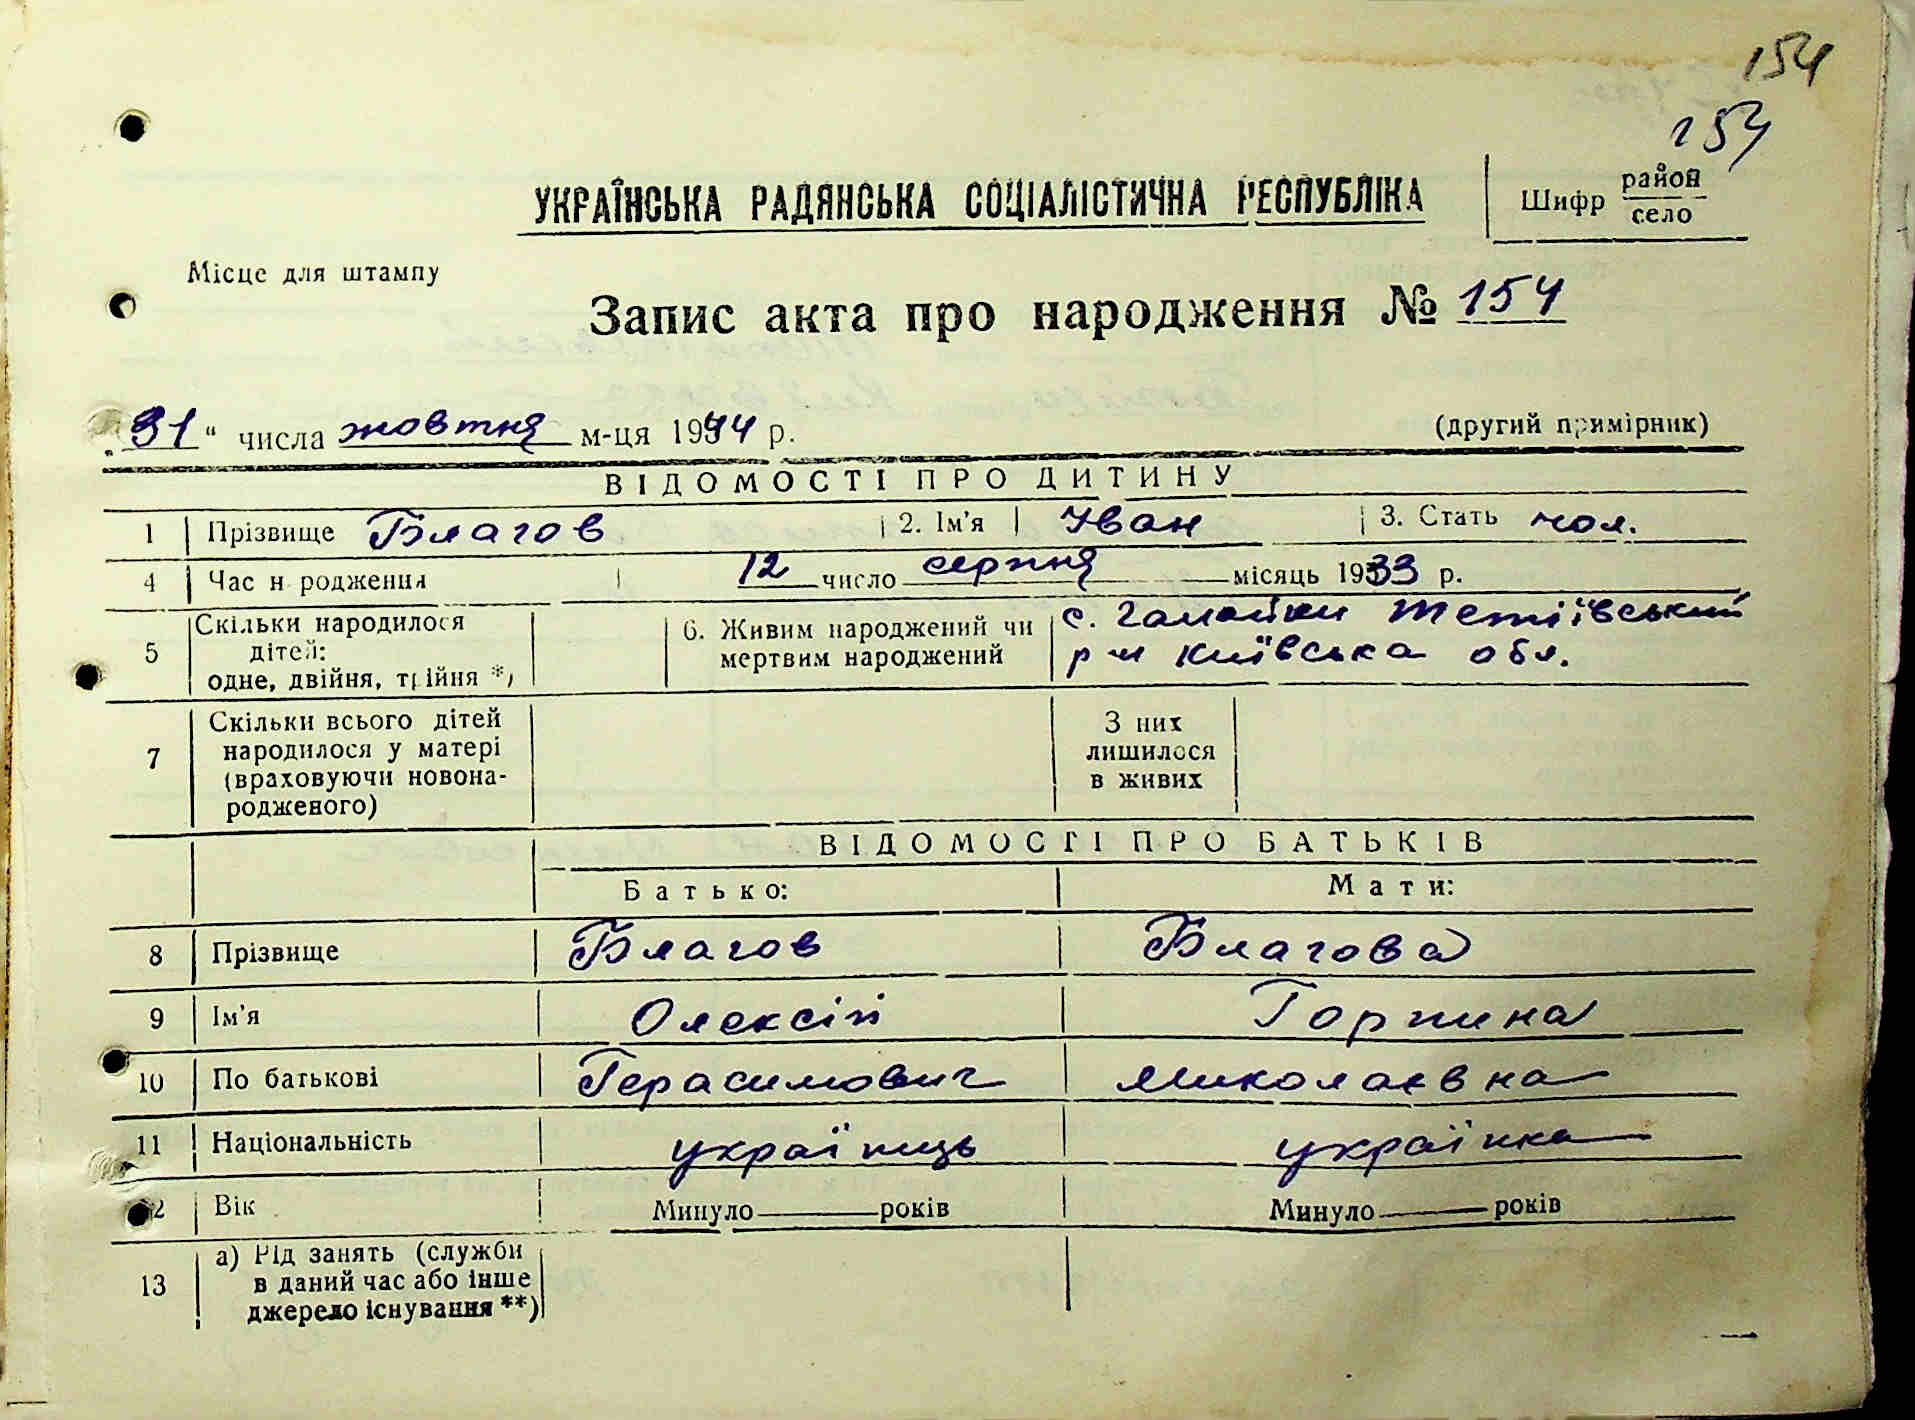 154
154
УКРАЇНСЬКА РАДЯНСЬКА СОЦІАЛІСТИЧНА РЕСПУБЛІКА
Шифр район
село
Місце для штампу
Запис акта про народження № 154
„31“ числа жовтня м-ця 1944 р.
(другий примірник)
ВІДОМОСТІ ПРО ДИТИНУ
1 Прізвище Благов 2. Ім'я Іван 3. Стать чол.
4 Час народження 12 число серпня місяць 1933 р.
5 Скільки народилося дітей: одне, двійня, трійня *)
6. Живим народжений чи мертвим народжений
с. Галайки Тетіївський
р-н Київська обл.
7 Скільки всього дітей народилося у матері (враховуючи новонародженого)
З них лишилося в живих
ВІДОМОСТІ ПРО БАТЬКІВ
Батько: Мати:
8 Прізвище Благов Благова
9 Ім'я Олексій Горпина
10 По батькові Герасимович Миколаєвна
11 Національність українць українка
12 Вік Минуло років Минуло років
13 а) Рід занять (служби в даний час або інше джерело існування **)